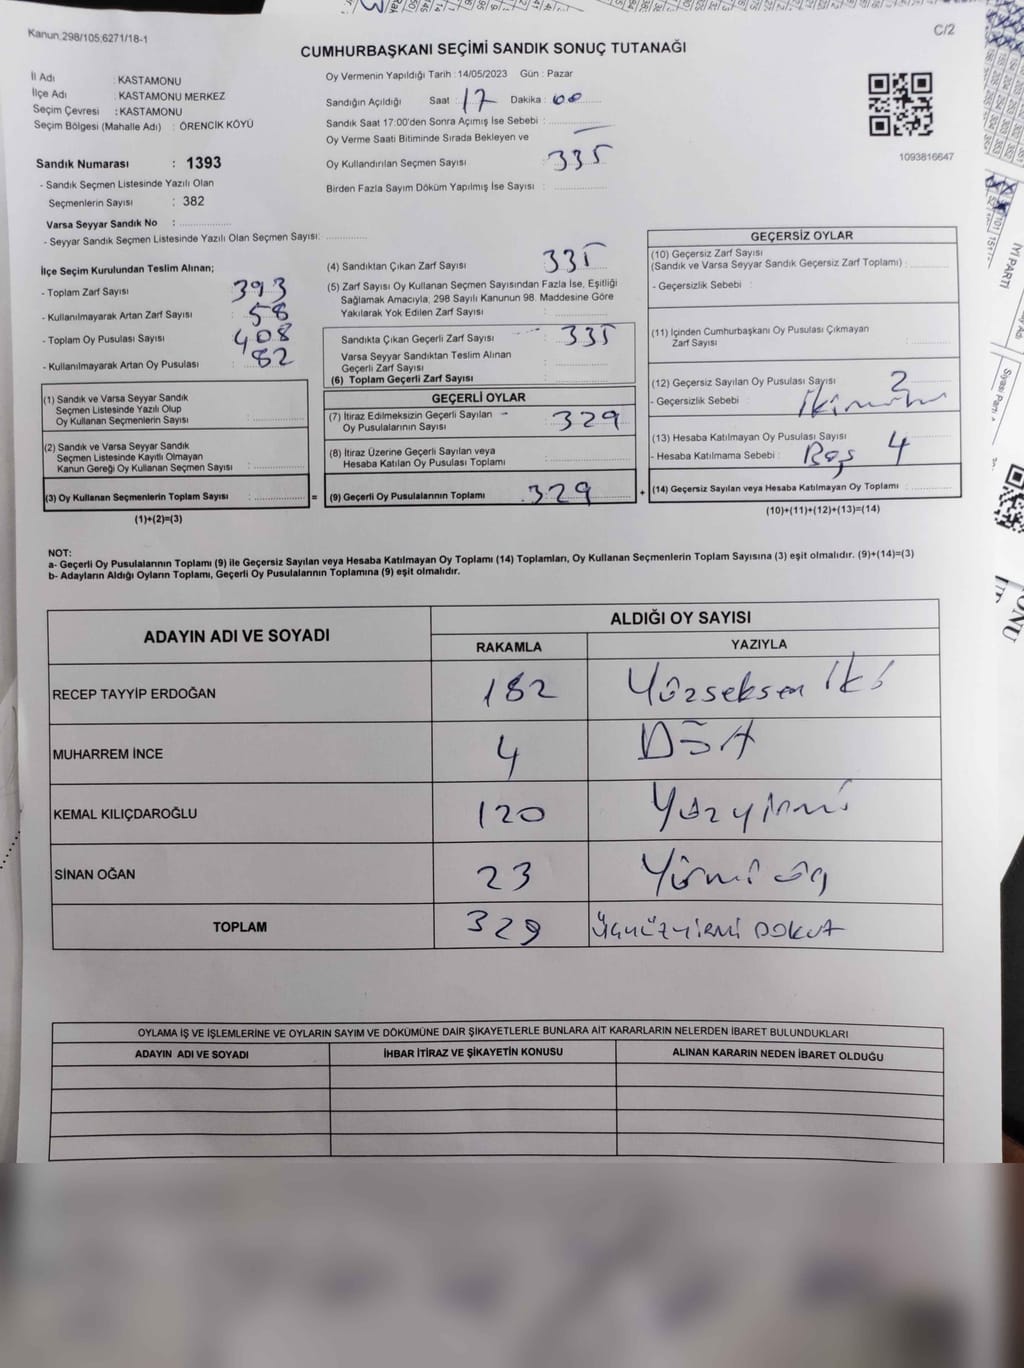 Kanun.298/105,6271/18-1
C/2
CUMHURBAŞKANI SEÇİMİ SANDIK SONUÇ TUTANAĞI
İl Adı : KASTAMONU
İlçe Adı : KASTAMONU MERKEZ
Seçim Çevresi : KASTAMONU
Seçim Bölgesi (Mahalle Adı) : ÖRENCİK KÖYÜ
Sandık Numarası : 1393
- Sandık Seçmen Listesinde Yazılı Olan
Seçmenlerin Sayısı : 382
Varsa Seyyar Sandık No :
- Seyyar Sandık Seçmen Listesinde Yazılı Olan Seçmen Sayısı:
Oy Vermenin Yapıldığı Tarih : 14/05/2023 Gün : Pazar
Sandığın Açıldığı Saat : 17 Dakika : 00
Sandık Saat 17:00'den Sonra Açımış İse Sebebi :
Oy Verme Saati Bitiminde Sırada Bekleyen ve
Oy Kullandırılan Seçmen Sayısı : 335
Birden Fazla Sayım Döküm Yapılmış İse Sayısı :
1093816647
İlçe Seçim Kurulundan Teslim Alınan;
- Toplam Zarf Sayısı : 393
- Kullanılmayarak Artan Zarf Sayısı : 58
- Toplam Oy Pusulası Sayısı : 408
- Kullanılmayarak Artan Oy Pusulası : 82
(1) Sandık ve Varsa Seyyar Sandık
Seçmen Listesinde Yazılı Olup
Oy Kullanan Seçmenlerin Sayısı :
(2) Sandık ve Varsa Seyyar Sandık
Seçmen Listesinde Kayıtlı Olmayan
Kanun Gereği Oy Kullanan Seçmen Sayısı :
(3) Oy Kullanan Seçmenlerin Toplam Sayısı : =
(1)+(2)=(3)
(4) Sandıktan Çıkan Zarf Sayısı : 335
(5) Zarf Sayısı Oy Kullanan Seçmen Sayısından Fazla İse, Eşitliği
Sağlamak Amacıyla; 298 Sayılı Kanunun 98. Maddesine Göre
Yakılarak Yok Edilen Zarf Sayısı :
Sandıkta Çıkan Geçerli Zarf Sayısı : 335
Varsa Seyyar Sandıktan Teslim Alınan
Geçerli Zarf Sayısı :
(6) Toplam Geçerli Zarf Sayısı :
GEÇERLİ OYLAR
(7) İtiraz Edilmeksizin Geçerli Sayılan
Oy Pusulalarının Sayısı : 329
(8) İtiraz Üzerine Geçerli Sayılan veya
Hesaba Katılan Oy Pusulası Toplamı :
(9) Geçerli Oy Pusulalarının Toplamı : 329 +
GEÇERSİZ OYLAR
(10) Geçersiz Zarf Sayısı
(Sandık ve Varsa Seyyar Sandık Geçersiz Zarf Toplamı) :
- Geçersizlik Sebebi :
(11) İçinden Cumhurbaşkanı Oy Pusulası Çıkmayan
Zarf Sayısı :
(12) Geçersiz Sayılan Oy Pusulası Sayısı : 2
- Geçersizlik Sebebi :
(13) Hesaba Katılmayan Oy Pusulası Sayısı : 4
- Hesaba Katılmama Sebebi : Boş
(14) Geçersiz Sayılan veya Hesaba Katılmayan Oy Toplamı :
(10)+(11)+(12)+(13)=(14)
NOT:
a- Geçerli Oy Pusulalarının Toplamı (9) ile Geçersiz Sayılan veya Hesaba Katılmayan Oy Toplamı (14) Toplamları, Oy Kullanan Seçmenlerin Toplam Sayısına (3) eşit olmalıdır. (9)+(14)=(3)
b- Adayların Aldığı Oyların Toplamı, Geçerli Oy Pusulalarının Toplamına (9) eşit olmalıdır.
ADAYIN ADI VE SOYADI ALDIĞI OY SAYISI
RAKAMLA YAZIYLA
RECEP TAYYİP ERDOĞAN 182 Yüzseksen iki
MUHARREM İNCE 4 DÖRT
KEMAL KILIÇDAROĞLU 120 Yüzyirmi
SİNAN OĞAN 23 Yirmi üç
TOPLAM 329 üçyüzyirmi DOKUZ
OYLAMA İŞ VE İŞLEMLERİNE VE OYLARIN SAYIM VE DÖKÜMÜNE DAİR ŞİKAYETLERLE BUNLARA AİT KARARLARIN NELERDEN İBARET BULUNDUKLARI
ADAYIN ADI VE SOYADI İHBAR İTİRAZ VE ŞİKAYETİN KONUSU ALINAN KARARIN NEDEN İBARET OLDUĞU
İYİ PARTİ